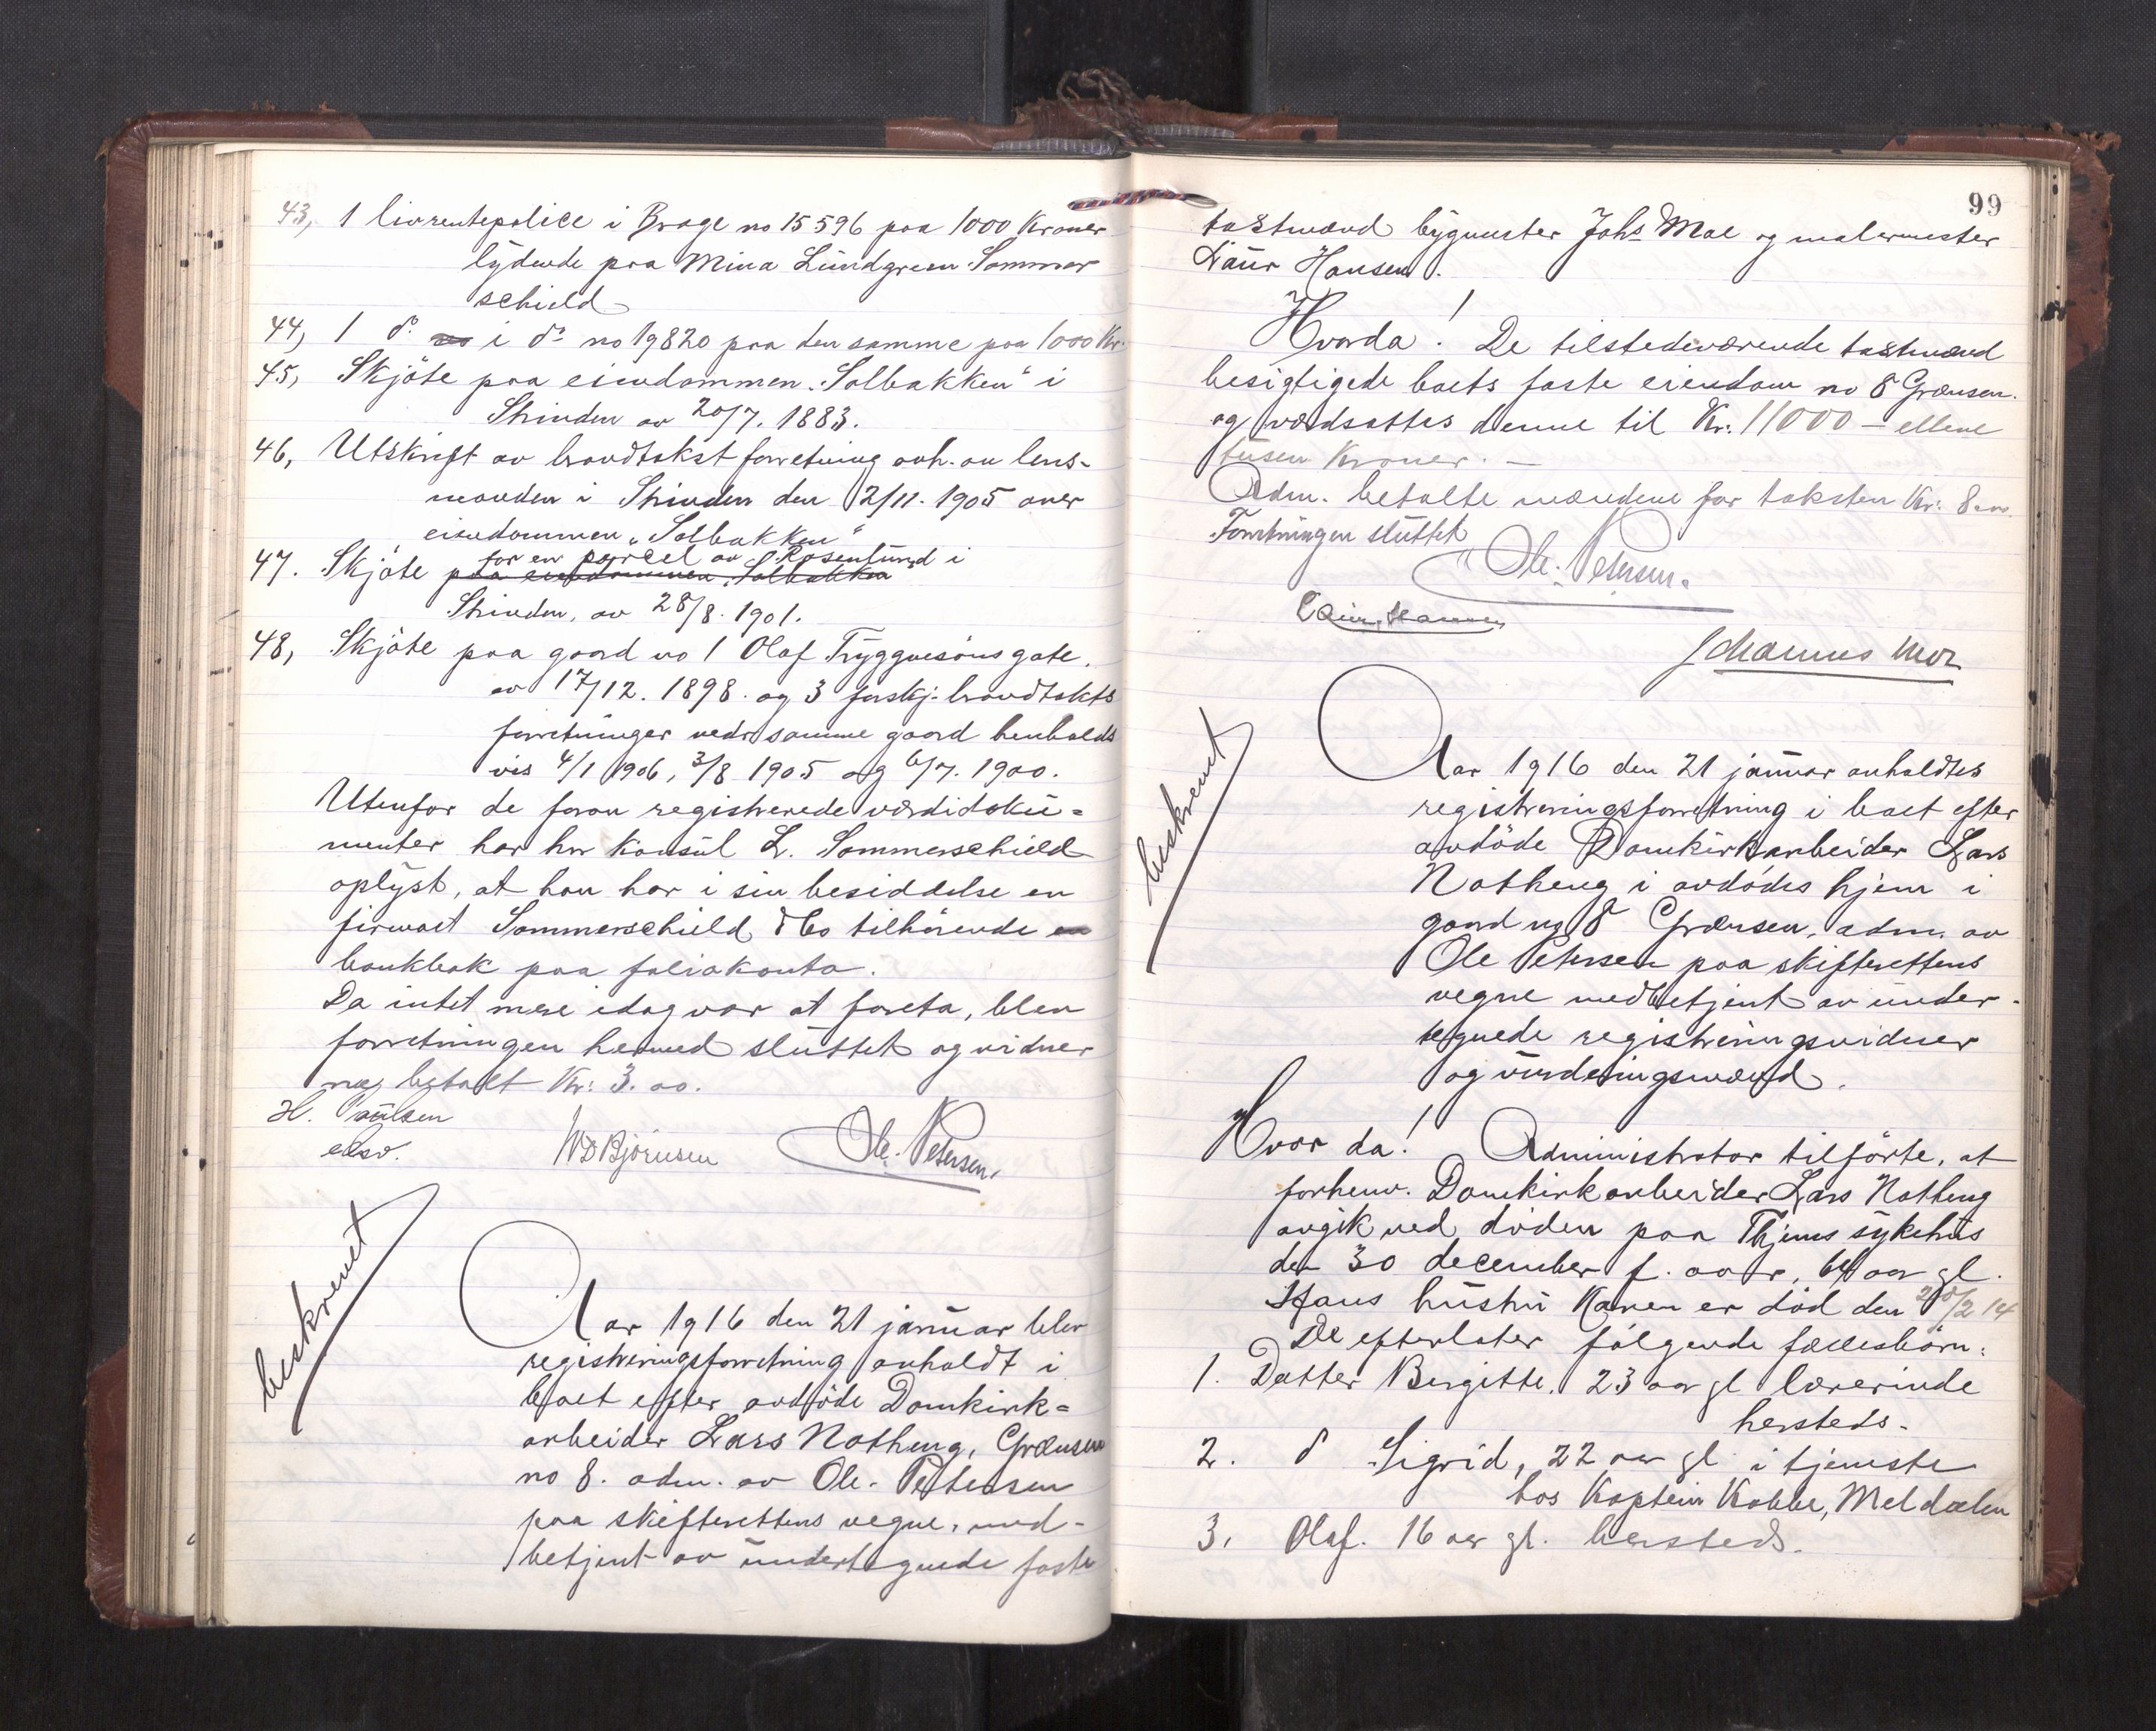 43, 1 livrentepolice i Brage no 15596 paa 1000 Kroner
lydende paa Mina Lundgreen Sommer
schield
44, 1 do i do no 19820 paa den samme paa 1000 Kr.
45, Skjöte paa eiendommen „Solbakken“ i
Strinden av 20/7. 1883.
46, Utskrift av brandtakst forretning avh. au lens-
manden i Strinden den 12/11. 1905 over
eiendommen „Solbakken“
for en parcel av Rosenlund i
47. Skjöte paa eiendommen „Solbakken
Strinden, av 28/8. 1901.
48, Skjöte paa gaard no 1 Olaf Trygguesöns gate.
av 17/12. 1898. og 3 forskj. brandtakts
forretninger vedr. samme gaard henholds
vis 4/1 1906, 3/8 1905 og 6/7. 1900.
Utenfor de foran registrerede værdidoku-
menter har hr konsul L. Sommerschield
oplyst, at han har i sin besiddelse en
firmaet Sommerschield & Co tilhörende en
bankbok paa foliokonto.
Da intet mere idag var at foreta, blev
forretningen hermed sluttet og vidner
nes betalt Kr: 3.00.
H. Paulsen
edsv.
WD Björnsen
Ole. Petersen.
beskrevet
Aar 1916 den 21 januar blev
registreringsforretning avholdt i
boet efter avdöde Domkirk-
arbeider Lars Notheng, Grænsen
no 8. adm. av Ole. Petersen
paa skifterettens vegne, med-
betjent av undertegnede faste
99
takstmænd bygmester Johs Moe og malermester
Laur Hansen.
Hvorda! De tilstedeværende takstmænd
besigtigede boets faste eiendom no 8 Grænsen.
og værdsattes denne til Kr. 11000 - elleve
tusen Kroner. -
Adm. betalte mændene for taksten Kr: 8.00.
Forretningen sluttet
Ole. Petersen.
Laur. Hansen
Johannes Moe
beskrevet
Aar 1916 den 21 januar avholdtes
registreringsforretning i boet efter
avdöde Domkirkarbeider Lars
Notheng i avdödes hjem i
gaard no 8 Grænsen, adm. av
Ole Petersen paa skifterettens
vegne medbetjent av under-
tegnede registreringsvidner
og vurderingsmænd.
Hvor da! Administrator tilförte, at
forhenv. Domkirkarbeider Lars Notheng
avgik ved döden paa Thjems sykehus
den 30 december f. aar, 64 aar gl.
Hans hustru Karen er död den 20/2 14
De efterlater fölgende fællesbörn:
1. Datter Bergitte. 23 aar gl lærerinde
hersteds.
2. do Sigrid, 22 aar gl i tjeneste
hos Kaptein Kobbe, Meldalen
3. Olaf. 16 aar gl. hersteds.